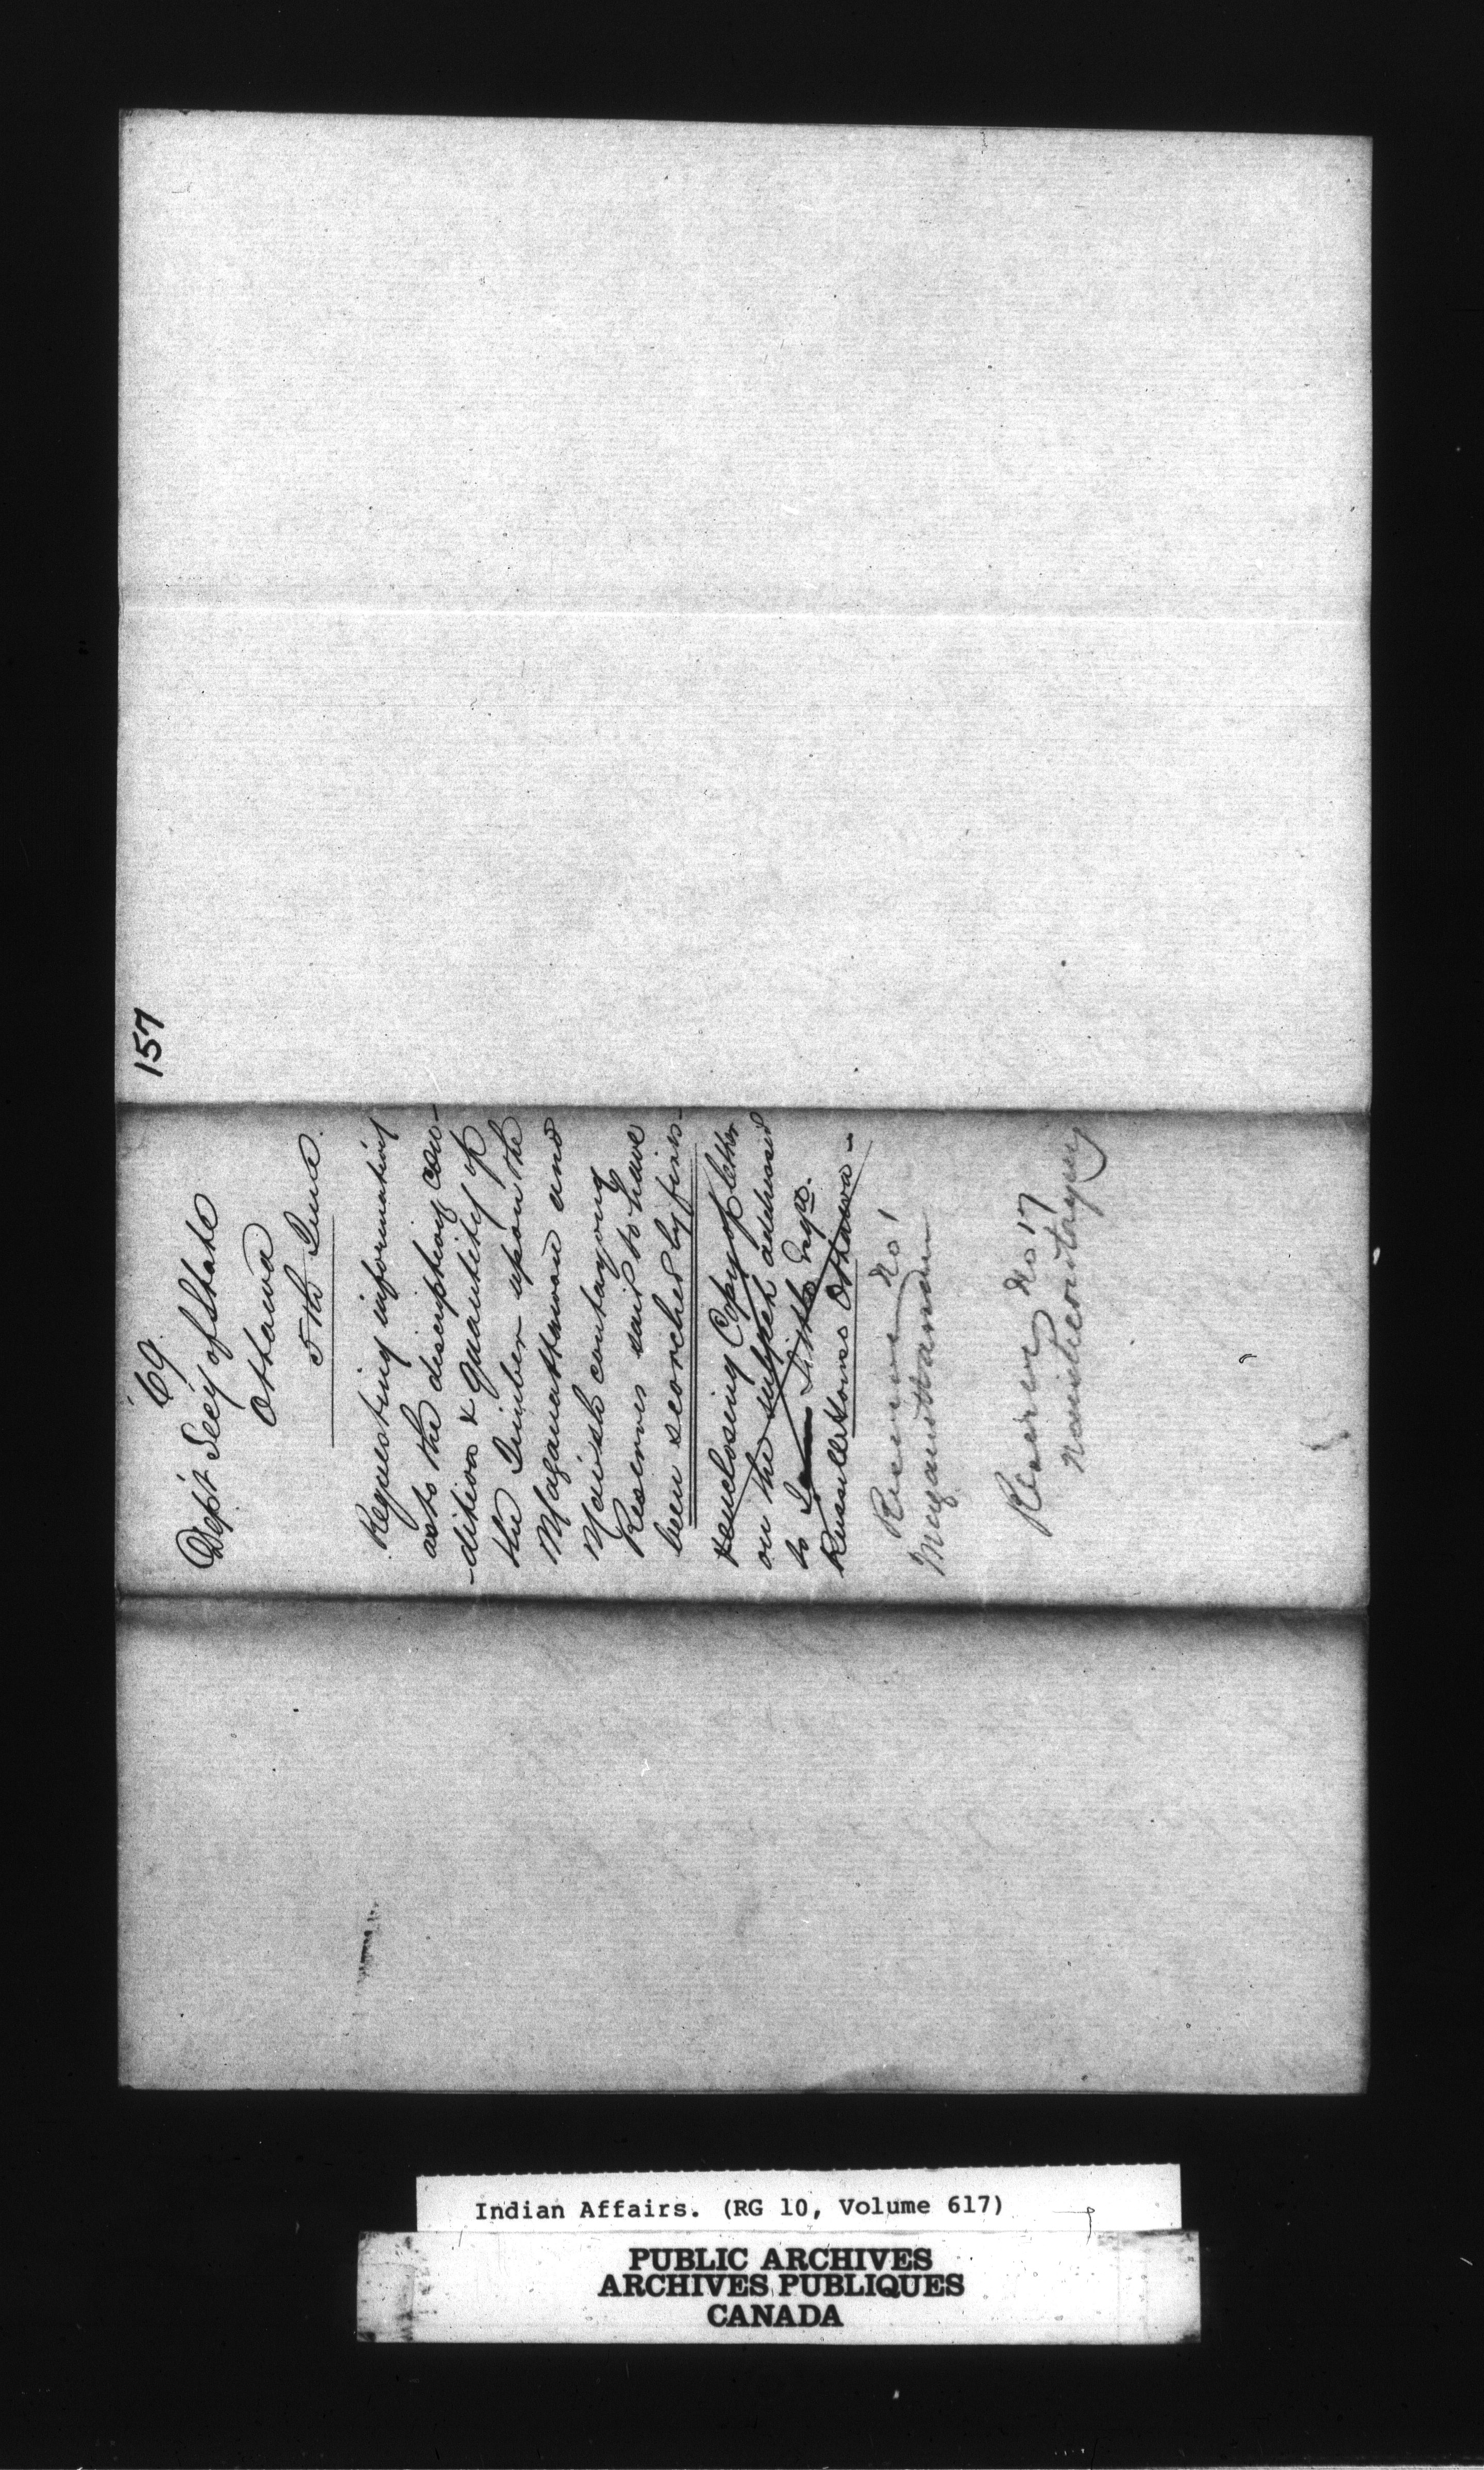 157
'69.
Dept Secy of State
Ottawa
5th June.
Requesting information
as to the description, con-
-dition & quantity of
the Timber upon the
Maganattawan and
Naish coutayong
Reserves said to have
been scorched by fires-
& enclosing Copy of letter
on the subject addressed
to Little Esqre.
Russell House Ottawa -
Reserve No 1
Maganattawan
Reserve No 17
Naishcoutayong
Indian Affairs. (RG 10, Volume 617)
PUBLIC ARCHIVES
ARCHIVES PUBLIQUES
CANADA